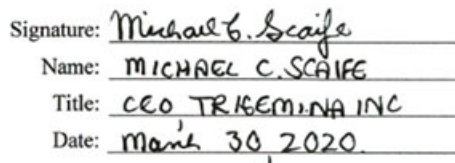 Signature: Michael C. Scaife
Name: MICHAEL C. SCAIFE
Title: CEO, TRIGEMINA INC
Date: March 30, 2020.